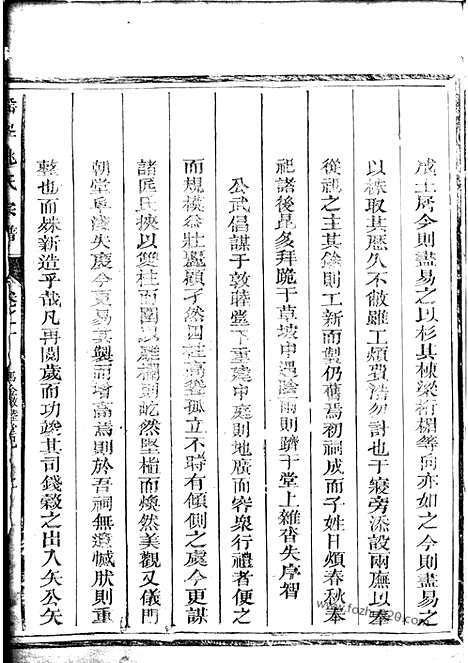 成土居今則盡易之以杉其棟梁桁楣等向亦如之今則盡易之
以株取其歷久不敝雖工煩費浩勿計也于寢旁添設兩廡以奉
從祀之主其餘則工新而製仍舊焉初祠成而子姓日煩春秋奉
祀諸後昆多拜跪于草坡中遇陰雨則躋于堂上雜沓失序智
公武倡謀于敦睦堂下重建中庭則地廣而容眾行禮者便之
而規模益壯麗顧孑然四柱高聳孤立不時有傾側之處今更謀
諸匠氏挾以雙柱而圍以雕欄則屹然堅樁而煥然美觀又儀門
朝堂卑淺失度今更易其製而增高焉則於吾祠無遺憾肰則重
整也而殊新造乎哉凡再閱歲而功竣其司錢穀之出入矢公矢
姚氏宗譜
www.fozhu920.com